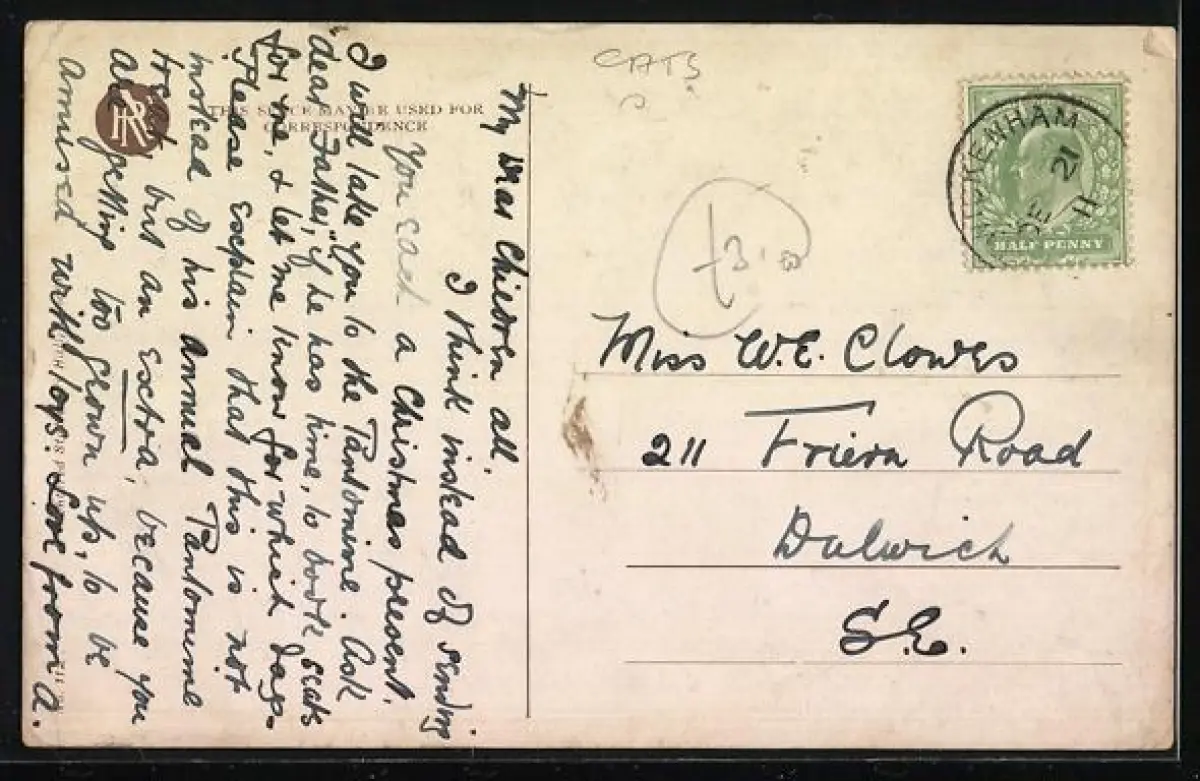 CATS
THIS SPACE MAY BE USED FOR
CORRESPONDENCE
My dear Children all,
I think instead of sending
you each a Christmas present,
I will take "you to the Pantomime. Ask
dear Father, if he has time, to book seats
for me, & let me know for which day.
Please explain that this is not
instead of his annual Pantomime
treat but an extra, because you
are getting too grown up, to be
amused with toys. Love from A.
HALF PENNY
KENHAM
DE 21
11
£3.00
Miss W.E. Clowes
211 Friern Road
Dulwich
S.E.